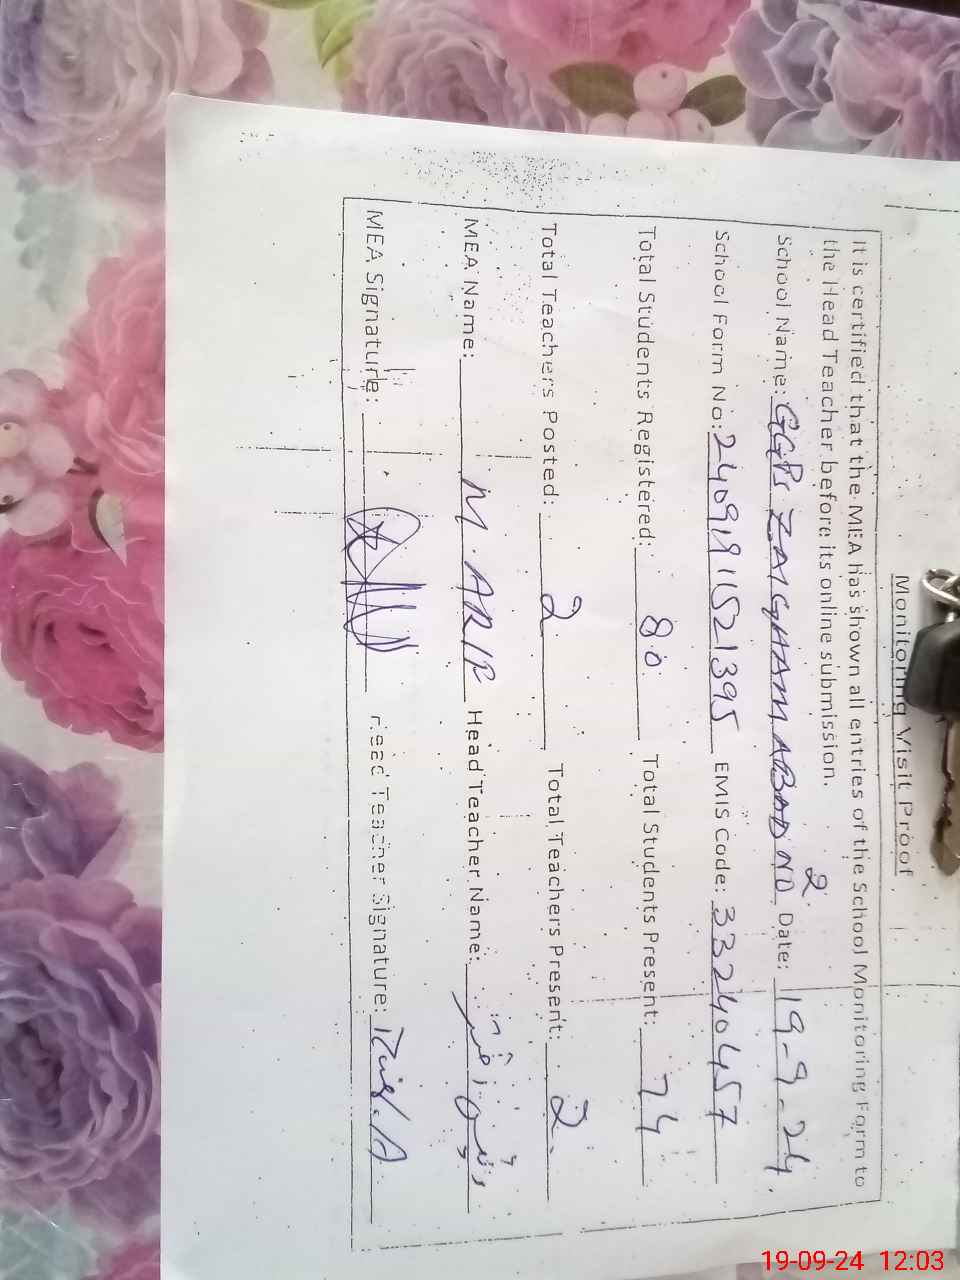 Monitoring Visit Proof
It is certified that the MEA has shown all entries of the School Monitoring Form to
the Head Teacher before its online submission.
School Name: GGPS ZAIGHAM ABAD NO 2 Date: 19-9-24
School Form No: 2409191521395 EMIS Code: 33240457
Total Students Registered: 80 Total Students Present: 74
Total Teachers Posted: 2 Total Teachers Present: 2
MEA Name: M. ARIF Head Teacher Name:
MEA Signature: Head Teacher Signature:
19-09-24 12:03